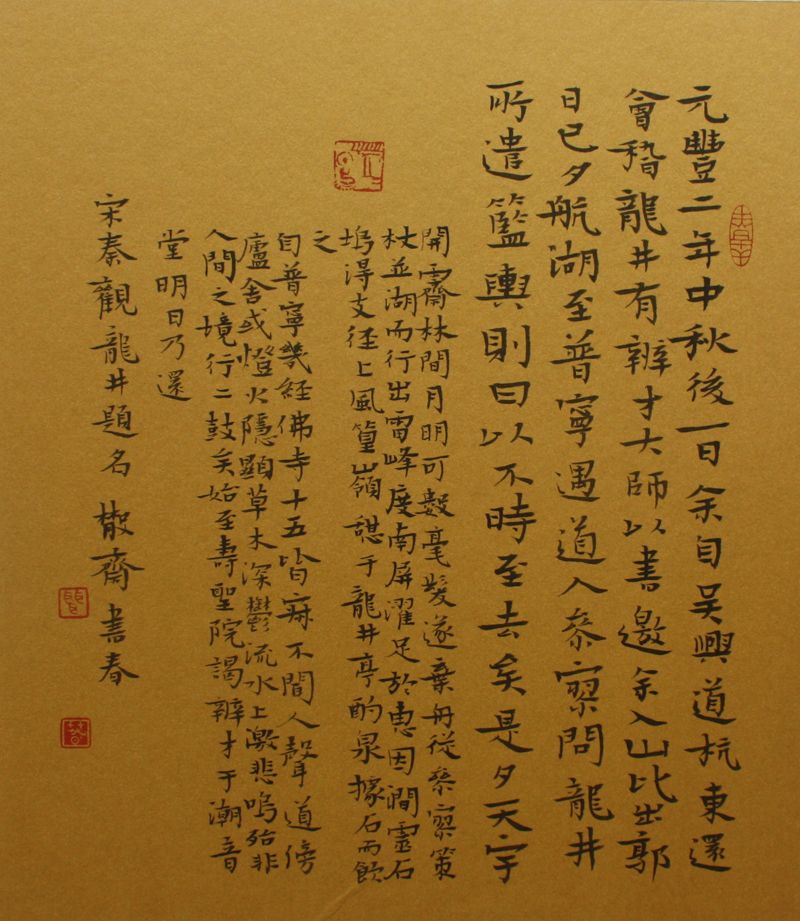 元豐二年中秋後一日余自吳興道杭東還
會稽龍井有辨才大師以書邀余入山比出郭
日已夕航湖至普寧遇道人參寥問龍井
所遣籃輿則曰以不時至去矣是夕天宇
開霽林間月明可數毫髮遂棄舟從參寥策
杖並湖而行出雷峰度南屏濯足於惠因澗靈石
塢得支徑上風篁嶺憩于龍井亭酌泉據石而飲
之
自普寧幾經佛寺十五皆寂不聞人聲道傍
廬舍或燈火隱顯草木深鬱流水上激悲嗚殆非
人間之境行二鼓矣始至壽聖院謁辨才于潮音
堂明日乃還
宋秦觀龍井題名 散齋書春